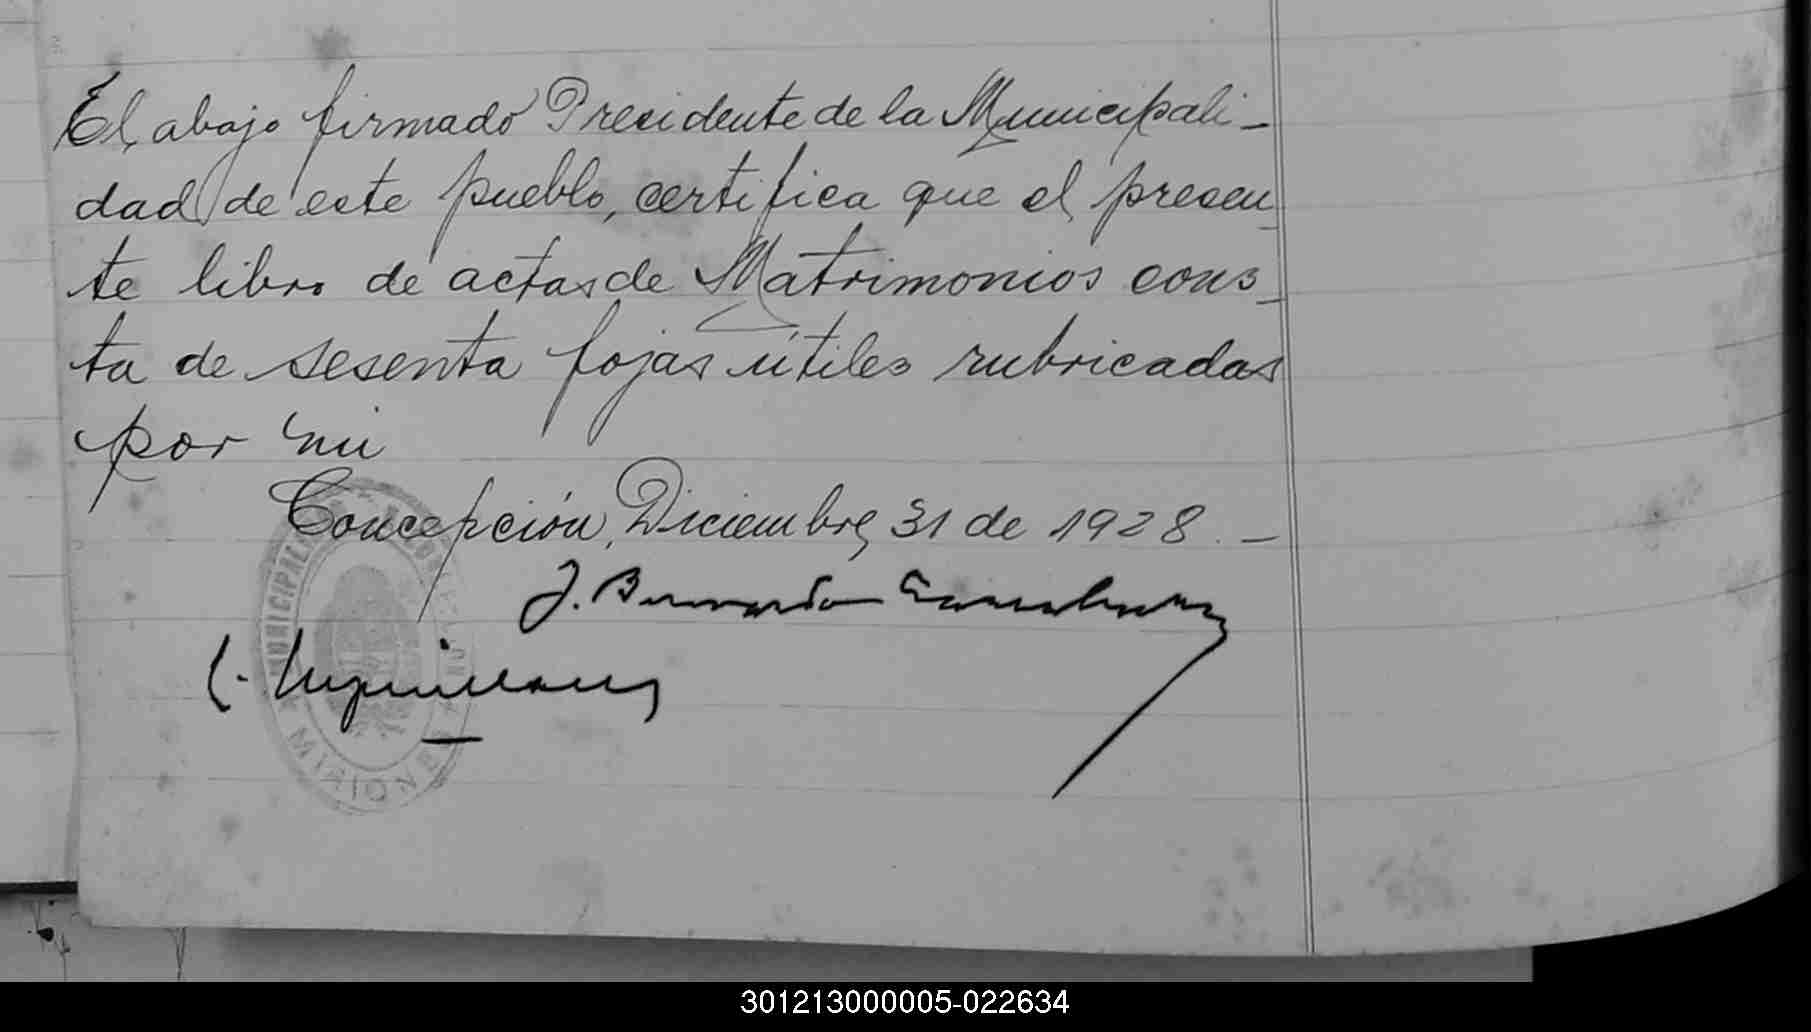 El abajo firmado Presidente de la Municipali-
dad de este pueblo, certifica que el presen-
te libro de actas de Matrimonios cons-
ta de sesenta fojas útiles rubricadas
por mi
Concepción, Diciembre 31 de 1928.-
J. Bernardo
MUNICIPALI
MISIONES
301213000005-022634